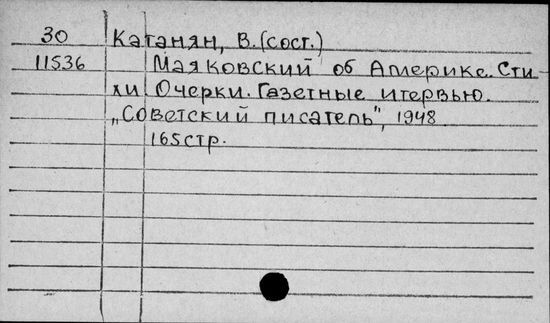 30 Катанян, В. (сост.)
11536 Маяковский об Америке. Сти-
хи Очерки. Газетные итервью.
„Советский писатель", 1948
165 стр.